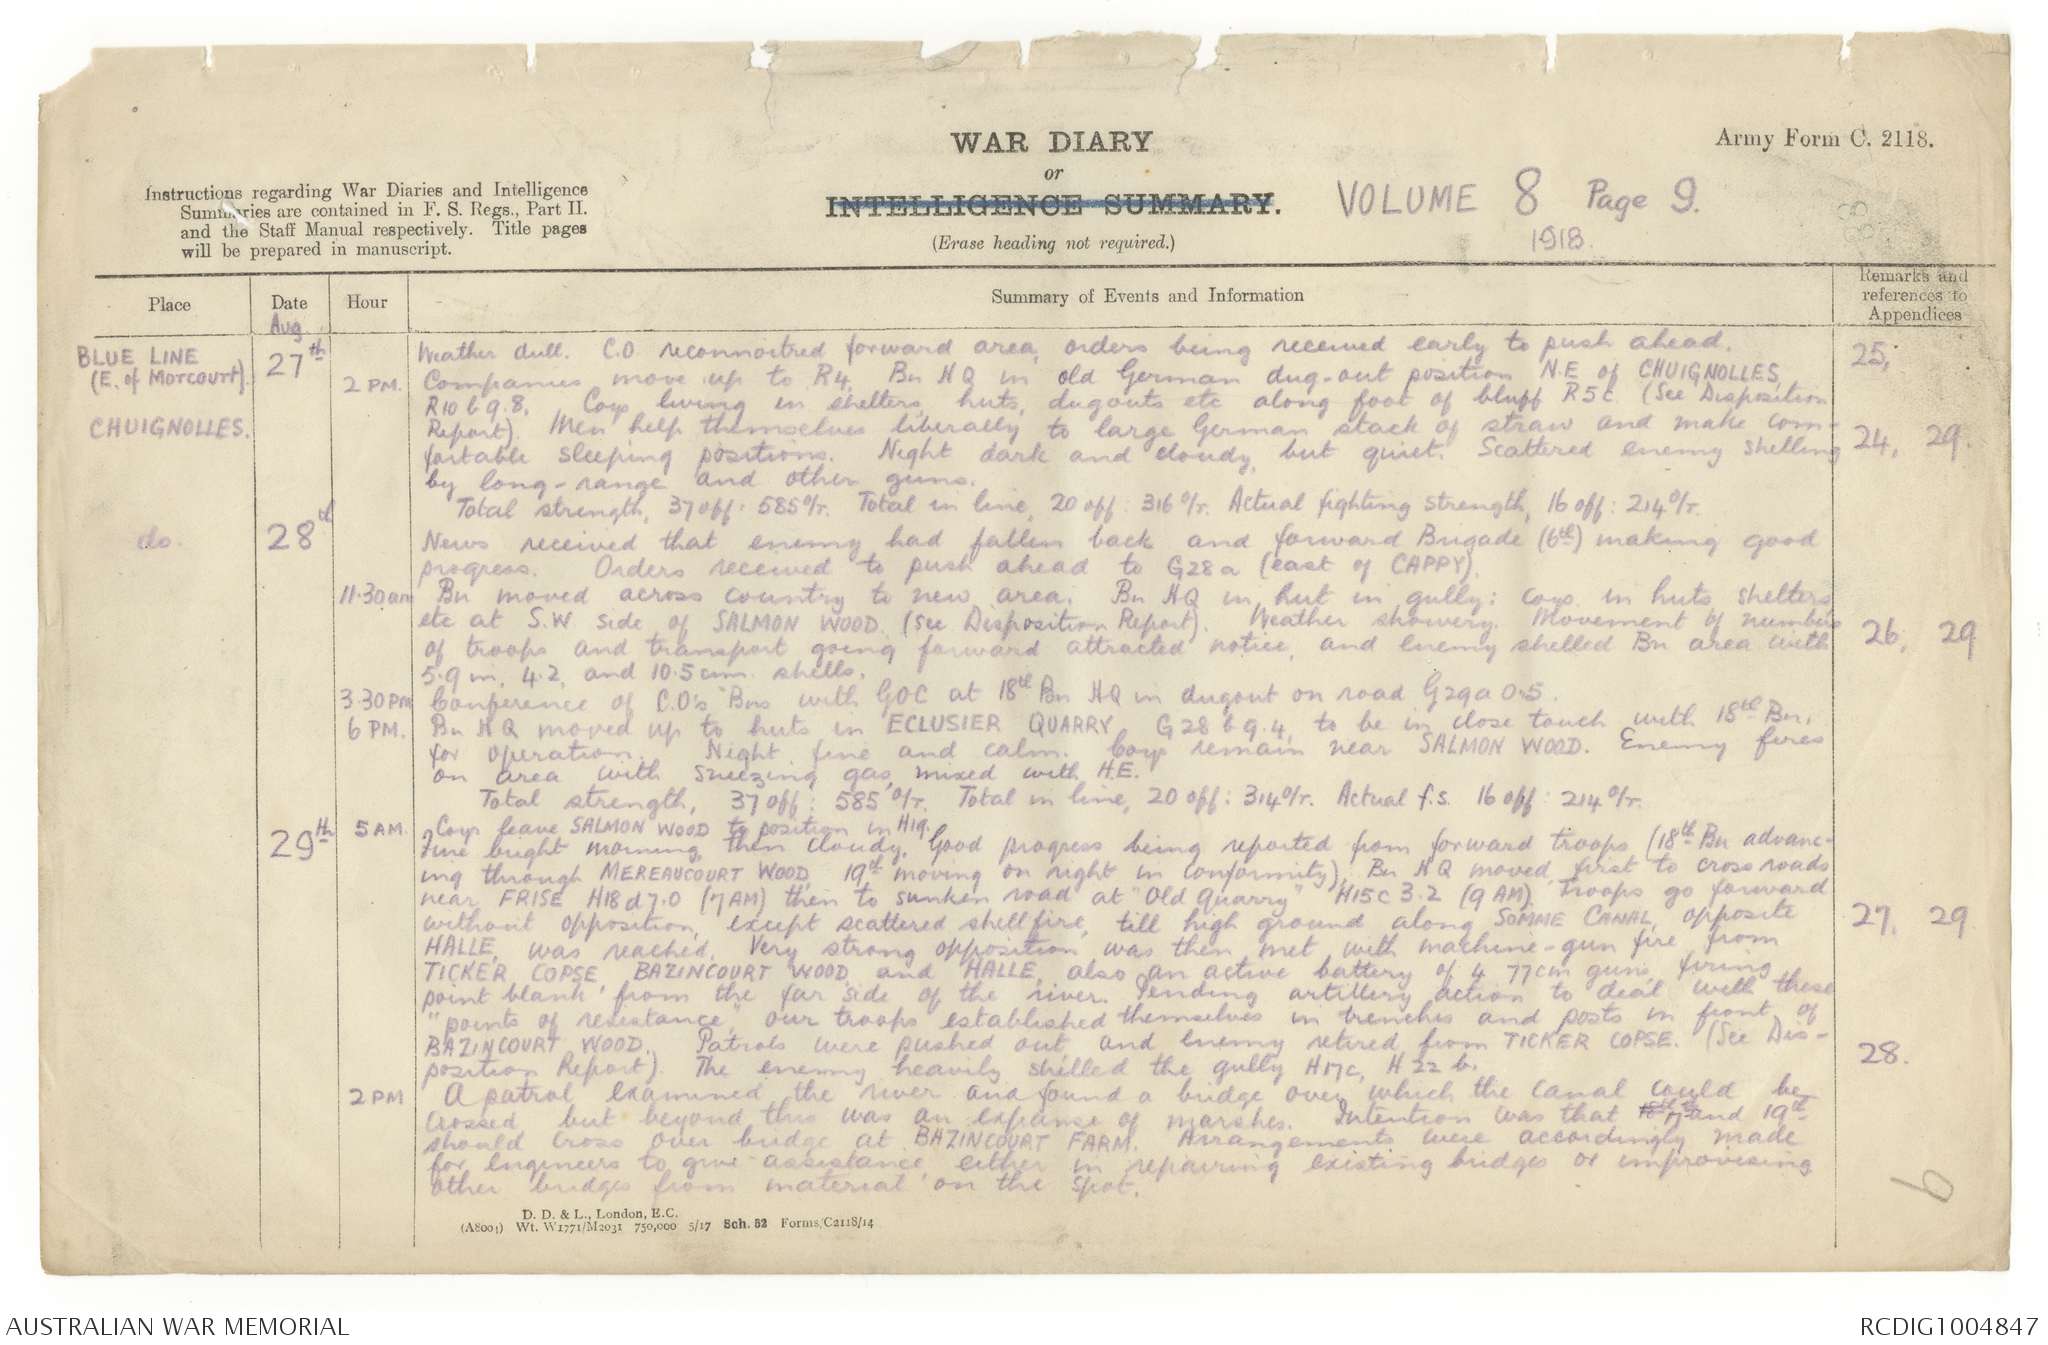 WAR DIARY
or
INTELLIGENCE SUMMARY.
(Erase heading not required.)
Army Form C. 2118.
VOLUME 8 Page 9.
1918.
Instructions regarding War Diaries and Intelligence
Summaries are contained in F. S. Regs., Part II.
and the Staff Manual respectively. Title pages
will be prepared in manuscript.
Place Date Hour Summary of Events and Information Remarks and references to Appendices
Aug
BLUE LINE 27th Weather dull. C.O. reconnoitred forward area, orders being received early to push ahead. 25,
(E. of MORCOURT). 2 PM. Companies move up to R4, Bn HQ in old German dug-out position N.E of CHUIGNOLLES,
R10 b 9.8. Coys living in shelters, huts, dugouts etc along foot of bluff R5c. (See Disposition
CHUIGNOLLES. Report). Men help themselves liberally to large German stack of straw and make com-
fortable sleeping positions. Night dark and cloudy, but quiet. Scattered enemy shelling 24, 29.
by long-range and other guns.
Total strength, 37 off: 585 o/r. Total in line, 20 off: 316 o/r. Actual fighting strength, 16 off: 214 o/r.
do. 28th News received that enemy had fallen back and forward Brigade (6th) making good
progress. Orders received to push ahead to G28a (east of CAPPY).
11.30 am Bn moved across country to new area. Bn HQ in hut in gully: coys in huts, shelters
etc at S.W. side of SALMON WOOD. (See Disposition Report). Weather showery. Movement of numbers
of troops and transport going forward attracted notice, and enemy shelled Bn area with 26, 29
5.9 in, 4.2, and 10.5 cm. shells.
3.30 PM Conference of C.O's Bns with GOC at 18th Bn HQ in dugout on road G29a 0.5.
6 PM. Bn HQ moved up to huts in ECLUSIER QUARRY G28 b 9.4, to be in close touch with 18th Bn,
for operation. Night fine and calm. Coys remain near SALMON WOOD. Enemy fires
on area with sneezing gas, mixed with H.E.
Total strength, 37 off: 585 o/r. Total in line, 20 off: 314 o/r. Actual f.s. 16 off: 214 o/r.
29th 5 AM. Coys leave SALMON WOOD to position in H19.
Fine bright morning, then cloudy. Good progress being reported from forward troops (18th Bn advanc-
ing through MEREAUCOURT WOOD, 19th moving on right in conformity), Bn HQ moved first to cross roads
near FRISE H18 d 7.0 (7 AM) then to sunken road at "Old Quarry" H15c 3.2 (9 AM). Troops go forward
without opposition, except scattered shellfire, till high ground along SOMME CANAL, opposite 27, 29
HALLE, was reached. Very strong opposition was then met with machine-gun fire from
TICKER COPSE, BAZINCOURT WOOD, and HALLE, also an active battery of 4 77cm guns, firing
point blank from the far side of the river. Pending artillery action to deal with these
"points of resistance," our troops established themselves in trenches and posts in front of
BAZINCOURT WOOD. Patrols were pushed out and enemy retired from TICKER COPSE. (See Dis-
position Report). The enemy heavily shelled the gully H17c, H22 b. 28.
2 PM A patrol examined the river and found a bridge over which the canal could be
crossed but beyond this was an expanse of marshes. Intention was that 17th and 19th
should cross over bridge at BAZINCOURT FARM. Arrangements were accordingly made
for engineers to give assistance, either in repairing existing bridges or improvising
other bridges from material on the spot.
D. D. & L., London, E.C.
(A8004) Wt. W1771/M2031 750,000 5/17 Sch. 52 Forms/C2118/14
AUSTRALIAN WAR MEMORIAL
RCDIG1004847